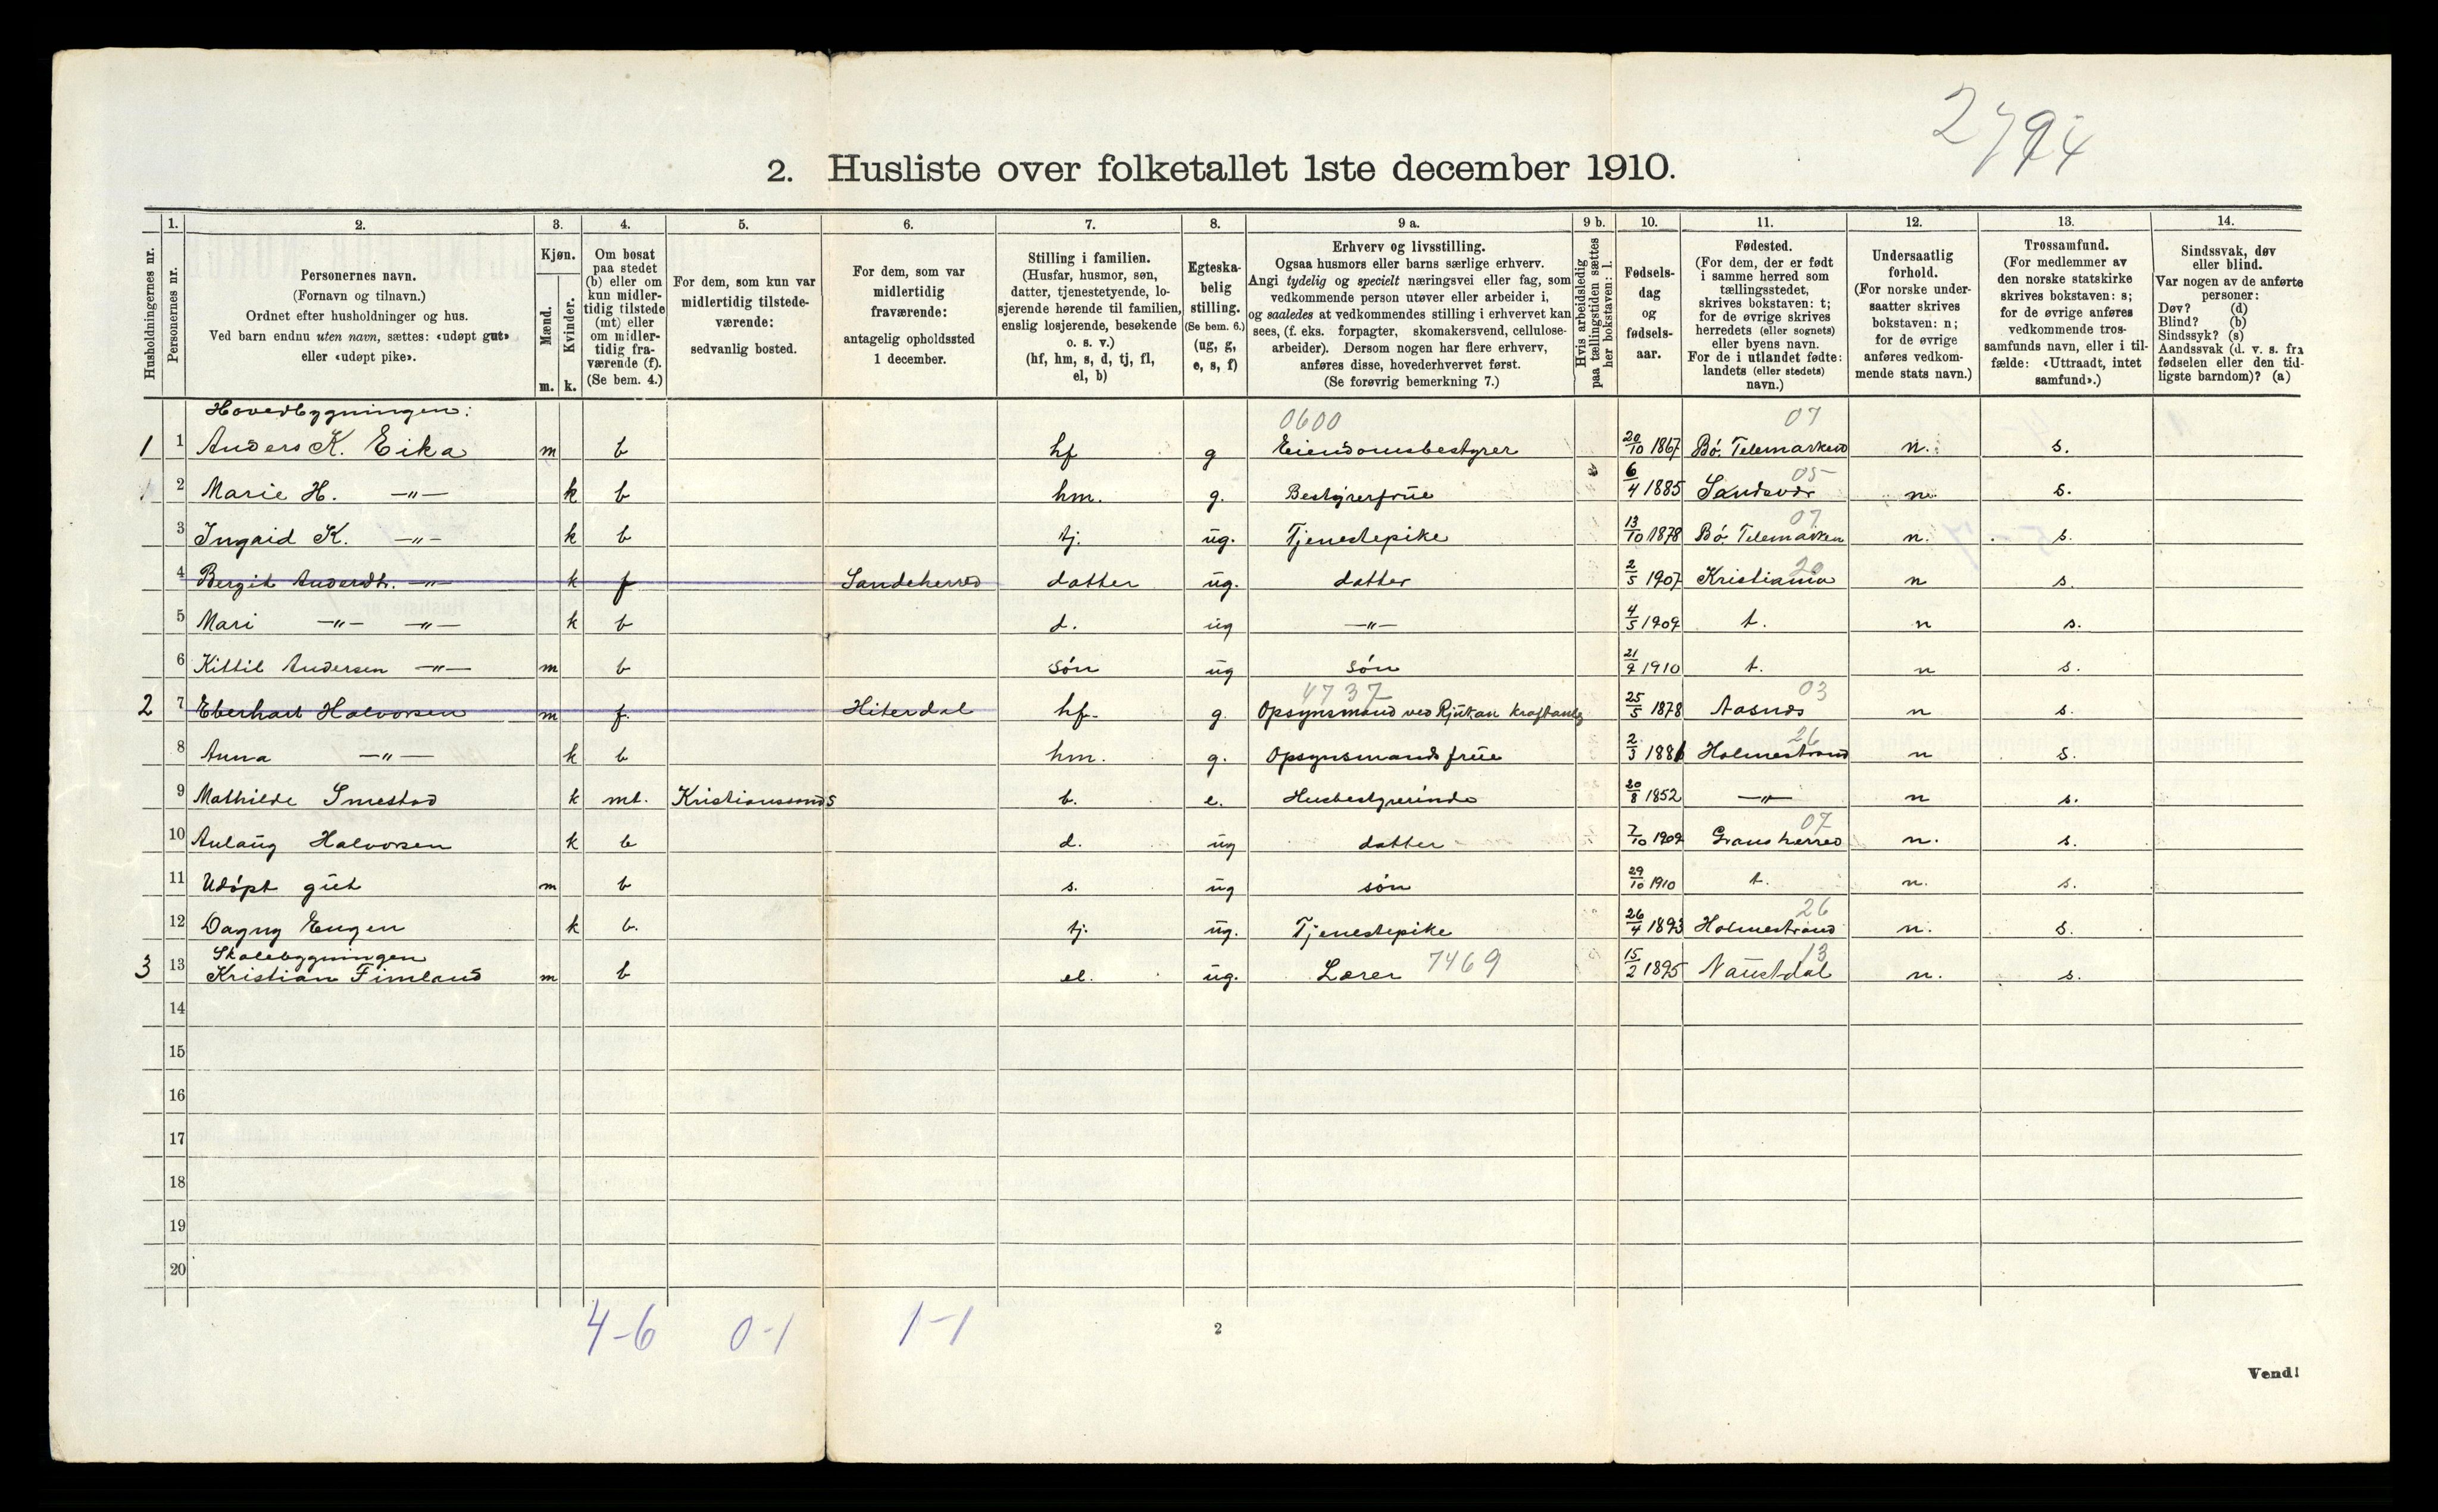 2794
2. Husliste over folketallet 1ste december 1910.
Husholdningernes nr.
1. Personernes nr.
2. Personernes navn.
(Fornavn og tilnavn.)
Ordnet efter husholdninger og hus.
Ved barn endnu uten navn, sættes: «udøpt gut»
eller «udøpt pike».
3. Kjøn.
Mænd. m.
Kvinder. k.
4. Om bosat
paa stedet
(b) eller om
kun midler-
tidig tilstede
(mt) eller
om midler-
tidig fra-
værende (f).
(Se bem. 4.)
5. For dem, som kun var
midlertidig tilstede-
værende:
sedvanlig bosted.
6. For dem, som var
midlertidig
fraværende:
antagelig opholdssted
1 december.
7. Stilling i familien.
(Husfar, husmor, søn,
datter, tjenestetyende, lo-
sjerende hørende til familien,
enslig losjerende, besøkende
o. s. v.)
(hf, hm, s, d, tj, fl,
el, b)
8. Egteska-
belig
stilling.
(Se bem. 6.)
(ug, g,
e, s, f)
9 a. Erhverv og livsstilling.
Ogsaa husmors eller barns særlige erhverv.
Angi tydelig og specielt næringsvei eller fag, som
vedkommende person utøver eller arbeider i,
og saaledes at vedkommendes stilling i erhvervet kan
sees, (f. eks. forpagter, skomakersvend, cellulose-
arbeider). Dersom nogen har flere erhverv,
anføres disse, hovederhvervet først.
(Se forøvrig bemerkning 7.)
9 b. Hvis arbeidsledig
paa tællingstiden sættes
her bokstaven: l.
10. Fødsels-
dag
og
fødsels-
aar.
11. Fødested.
(For dem, der er født
i samme herred som
tællingsstedet,
skrives bokstaven: t;
for de øvrige skrives
herredets (eller sognets)
eller byens navn.
For de i utlandet fødte:
landets (eller stedets)
navn.)
12. Undersaatlig
forhold.
(For norske under-
saatter skrives
bokstaven: n;
for de øvrige
anføres vedkom-
mende stats navn.)
13. Trossamfund.
(For medlemmer av
den norske statskirke
skrives bokstaven: s;
for de øvrige anføres
vedkommende tros-
samfunds navn, eller i til-
fælde: «Uttraadt, intet
samfund».)
14. Sindssvak, døv
eller blind.
Var nogen av de anførte
personer:
Døv? (d)
Blind? (b)
Sindssyk? (s)
Aandssvak (d. v. s. fra
fødselen eller den tid-
ligste barndom)? (a)
Hovedbygningen: 0600 07
1 1 Anders K. Eika m b hf g Eiendomsbestyrer 20/10 1867 Bø. Telemarken n. s.
05
2 Marie H. —"— k b hm. g. Bestyrerfrue 6/4 1885 Sandsvær n. s.
07
3 Ingaid K. —"— k b tj. ug. Tjenestepike 13/10 1878 Bø. Telemarken n. s.
20
4 Bergit Andersdt. —"— k f Sandeherred datter ug. datter 2/5 1907 Kristiania n s.
5 Mari —"— —"— k b d. ug —"— 4/5 1909 t. n s.
6 Kittil Andersen —"— m b søn ug søn 21/9 1910 t. n s.
4737 03
2 7 Eberhart Halvorsen m f. Hiterdal hf. g. Opsynsmand ved Rjukan kraftanlæg 25/5 1878 Aasnes n s.
26
8 Anna —"— k b hm. g. Opsynsmands frue 2/3 1886 Holmestrand n s.
9 Mathilde Smestad k mt. Kristianssands b. e. Husbestyrerinde 20/8 1852 —"— n s.
07
10 Aulaug Halvorsen k b d. ug datter 7/10 1909 Gransherred n. s.
11 Udøpt gut m b s. ug søn 29/10 1910 t. n. s.
26
12 Dagny Engen k b. tj. ug. Tjenestepike 26/4 1893 Holmestrand n. s.
Skolebygningen 13
3 13 Kristian Fimland m b el. ug. Lærer 7469 15/2 1895 Naustdal n. s.
14
15
16
17
18
19
20
4-6 0-1 1-1
2
Vend!